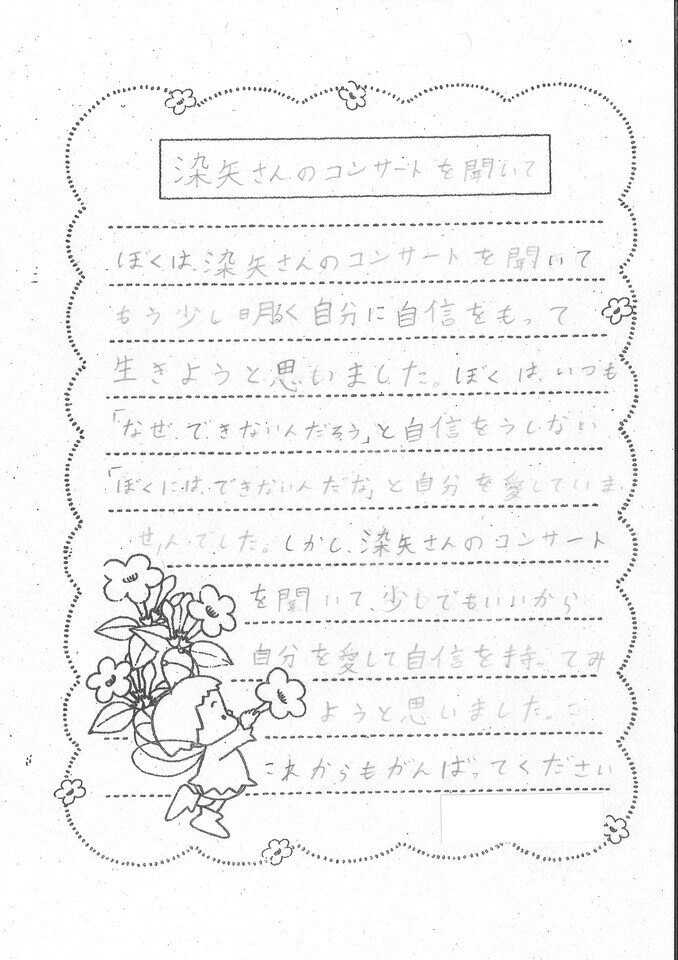 染矢さんのコンサートを聞いて
ぼくは、染矢さんのコンサートを聞いて
もう少し明るく自分に自信をもって
生きようと思いました。ぼくは、いつも
「なぜ、できないんだろう」と自信をうしない
「ぼくには、できないんだな」と自分を愛していま
せんでした。しかし、染矢さんのコンサート
を聞いて、少しでもいいから
自分を愛して自信を持ってみ
ようと思いました。こ
これからもがんばってください